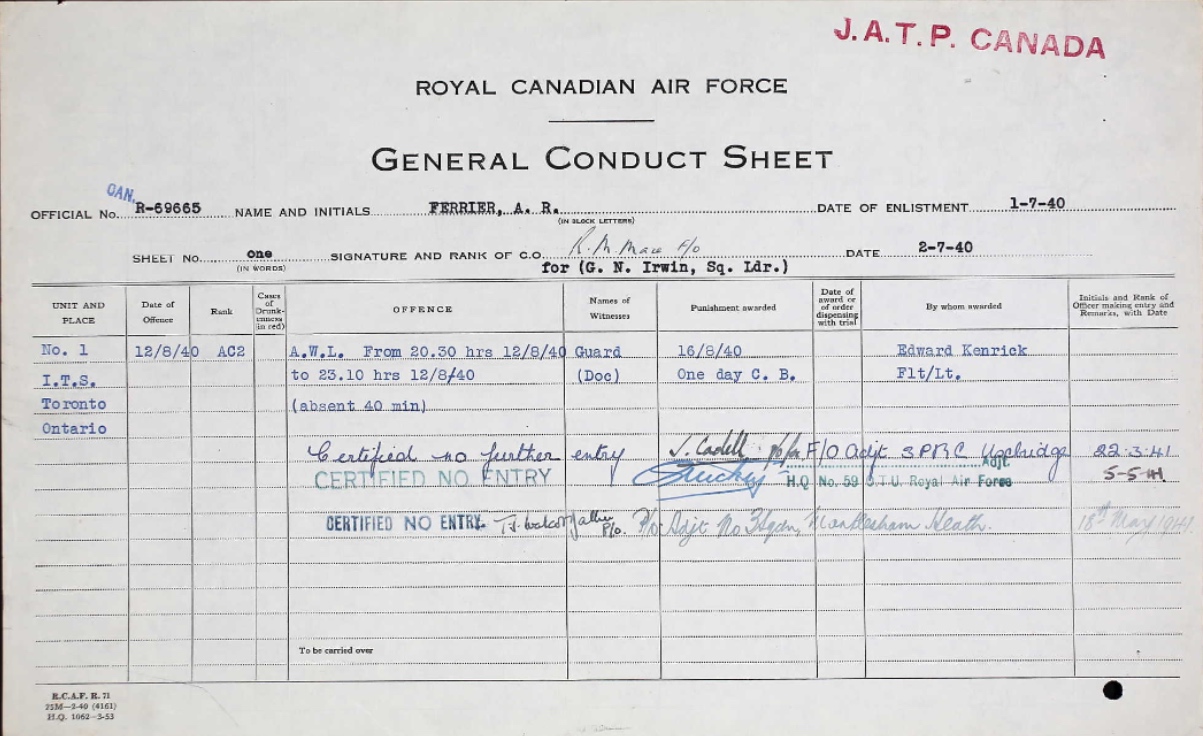 J.A.T.P. CANADA
ROYAL CANADIAN AIR FORCE
GENERAL CONDUCT SHEET
CAN.
OFFICIAL No. R-69665 NAME AND INITIALS FERRIER, A. R. DATE OF ENLISTMENT 1-7-40
(IN BLOCK LETTERS)
SHEET NO. one SIGNATURE AND RANK OF C.O. R. M. Mace F/O DATE 2-7-40
(IN WORDS) for (G. N. Irwin, Sq. Ldr.)
UNIT AND PLACE Date of Offence Rank Cases of Drunk-enness (in red) OFFENCE Names of Witnesses Punishment awarded Date of award or of order dispensing with trial By whom awarded Initials and Rank of Officer making entry and Remarks, with Date
No. 1 12/8/40 AC2 A.W.L. From 20.30 hrs 12/8/40 Guard 16/8/40 Edward Kenrick
I.T.S. to 23.10 hrs 12/8/40 (Doc) One day C. B. Flt/Lt.
Toronto (absent 40 min)
Ontario
Certified no further entry J. Cadell F/O Adjt 3 PRC Uxbridge 22.3.41
CERTIFIED NO ENTRY Adjt. H.Q. No. 59 O.T.U. Royal Air Force 5-5-41
CERTIFIED NO ENTRY. P/O. P/O Adjt No 3 Sqdn, Martlesham Heath. 18th May 1941
To be carried over
R.C.A.F. R. 71
25M—2-40 (4161)
H.Q. 1062-3-53